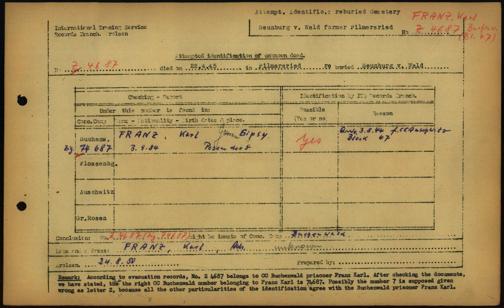 Attempt. Identific.: reburied Cemetery
International Tracing Service
Records Branch. Arolsen
Neunburg v. Wald former Pilmersried
FRANZ, Karl
No Z 4687
Attempted identification of unknown dead.
No. Z 4687 died on .4.45 in Pilmersried Re buried Neunburg v. Wald
Checking - Report
Identification by ITS Records Branch.
Under this number is found in:
Possible
(Yes or no)
Reason
Conc.Camp Name - Nationality - birth date & place.
Buchenw. FRANZ, Karl Gipsy
74 687 3.9.04
Yes
Block 47
Flossenbg.
Auschwitz
Gr.Rosen
Conclusion: might be inmate of Conc. Camp Buchenwald
FRANZ, Karl,
Arolsen 24.8.50 Prepared by
Remark: According to evacuation records, No. Z 4687 belongs to CC Buchenwald prisoner Franz Karl. After checking the documents,
we have stated, that the right CC Buchenwald number belonging to Franz Karl is 74687. Possibly the number 7 is supposed given
wrong as letter Z, because all the other particularities of the identification agree with the Buchenwald prisoner.